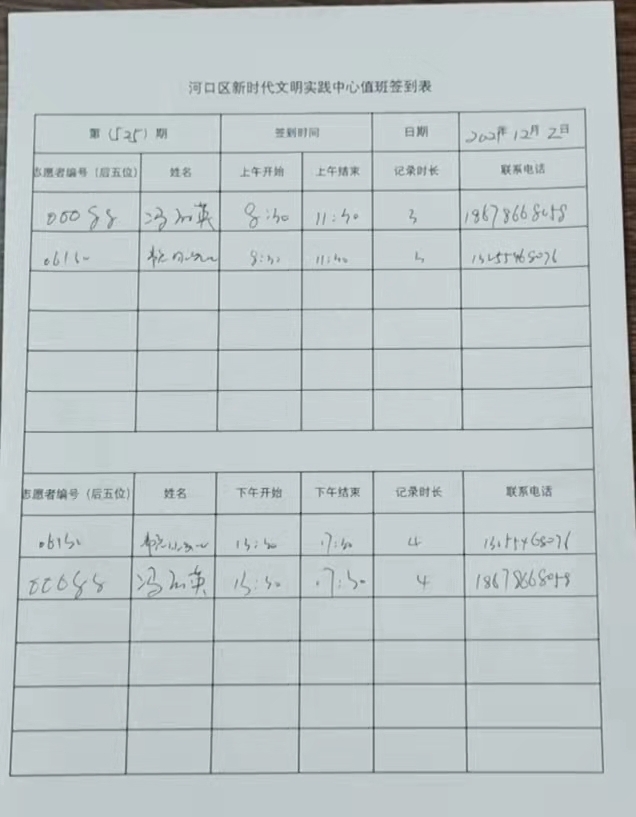 河口区新时代文明实践中心值班签到表
第（525）期 签到时间 日期 2021年12月2日
志愿者编号（后五位） 姓名 上午开始 上午结束 记录时长 联系电话
00088 冯 英 8:30 11:30 3 18678668058
06130 8:30 11:30 3 13255468076
志愿者编号（后五位） 姓名 下午开始 下午结束 记录时长 联系电话
06130 13:30 17:30 4
00088 冯 英 13:30 17:30 4 18678668058